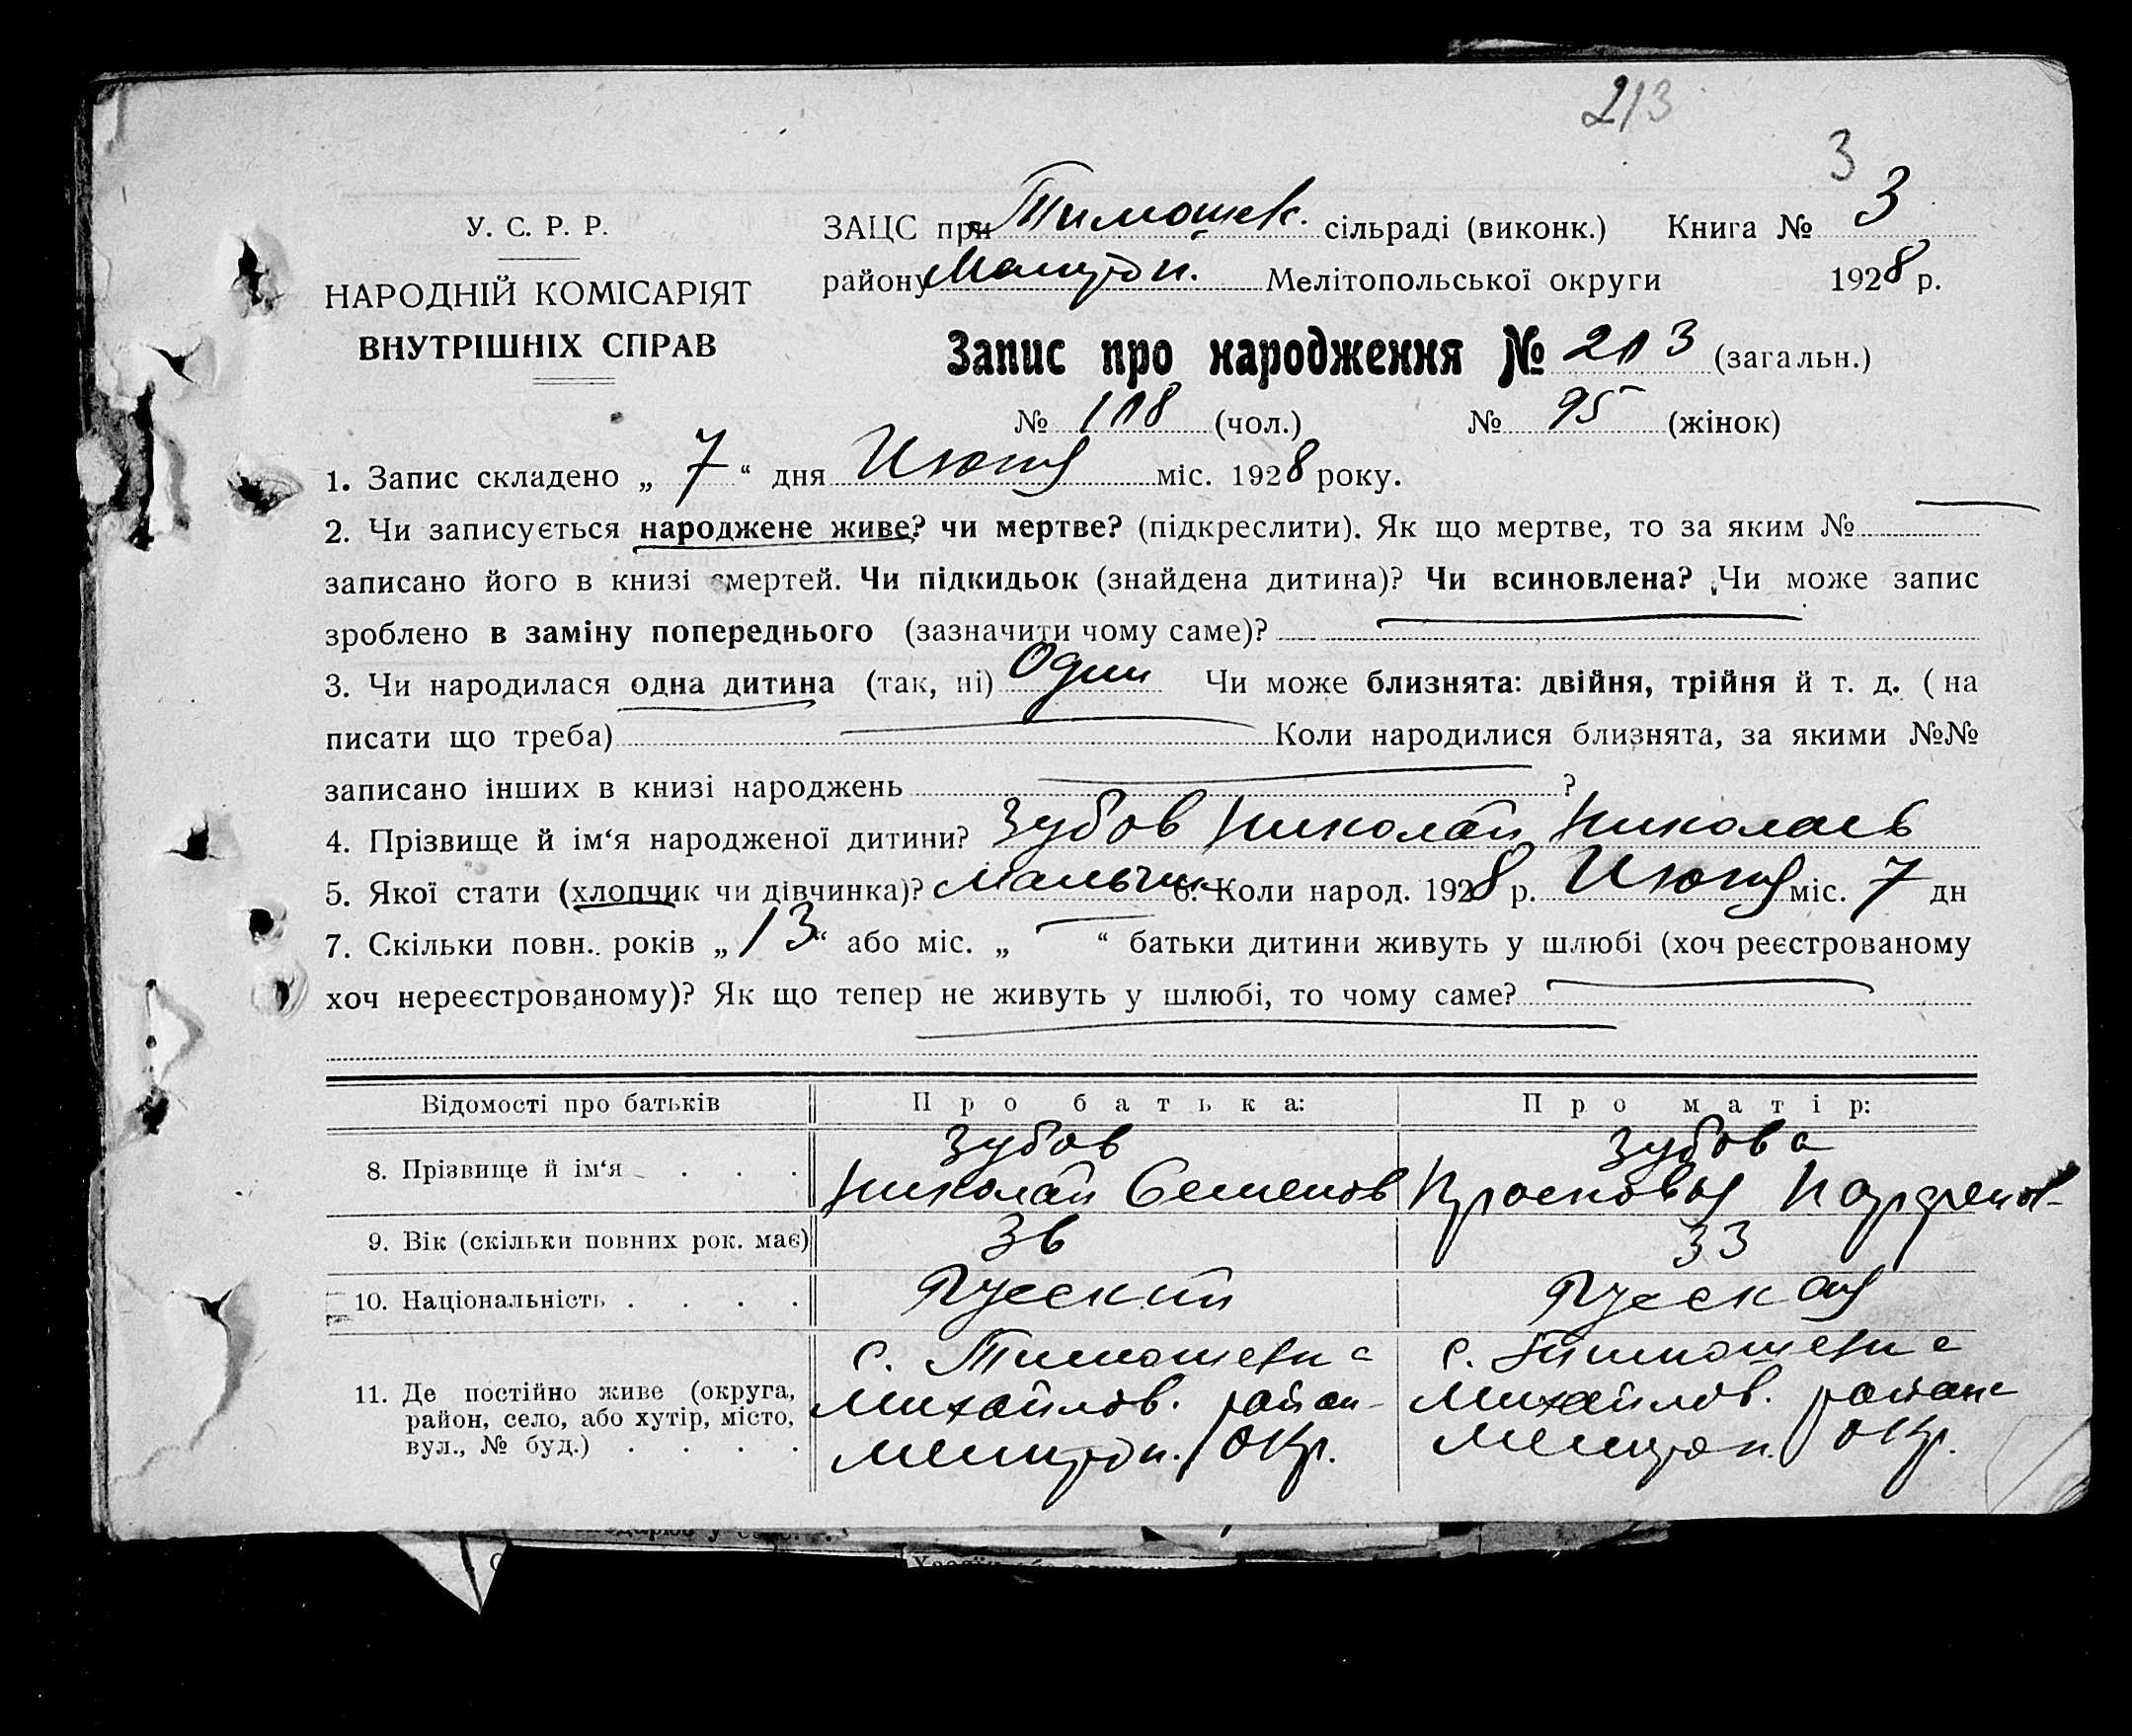 213
3
У. С. Р. Р.
НАРОДНІЙ КОМІСАРІЯТ
ВНУТРІШНІХ СПРАВ
ЗАЦС при Тимошек. сільраді (виконк.) Книга № 3
району Мелітопольської округи 1928 р.
Запис про народження № 213 (загальн.)
№ 118 (чол.) № 95 (жінок)
1. Запис складено „ 7 “ дня Июня міс. 1928 року.
2. Чи записується народжене живе? чи мертве? (підкреслити). Як що мертве, то за яким №
записано його в книзі смертей. Чи підкидьок (знайдена дитина)? Чи всиновлена? Чи може запис
зроблено в заміну попереднього (зазначити чому саме)?
3. Чи народилася одна дитина (так, ні) Один Чи може близнята: двійня, трійня й т. д. ( на
писати що треба) Коли народилися близнята, за якими №№
записано інших в книзі народжень ?
4. Прізвище й ім‘я народженої дитини? Зубов Николай Николаев
5. Якої стати (хлопчик чи дівчинка)? Мальчик 6. Коли народ. 1928 р. Июня міс. 7 дн
7. Скільки повн. років „ 13 “ або міс. „ “ батьки дитини живуть у шлюбі (хоч реєстрованому
хоч нереєстрованому)? Як що тепер не живуть у шлюбі, то чому саме?
Відомості про батьків П р о б а т ь к а: П р о м а т і р:
8. Прізвище й ім‘я . . . Зубов Николай Семенов Зубова Прасковья Парфенов-
9. Вік (скільки повних рок. має) 36 33
10. Національність . . . . Русский Русская
11. Де постійно живе (округа, с. Тимошевка с. Тимошевка
район, село, або хутір, місто, Михайлов. район- Михайлов. района
вул., № буд.) . . . . Мелитоп. окр. Мелитоп. окр.